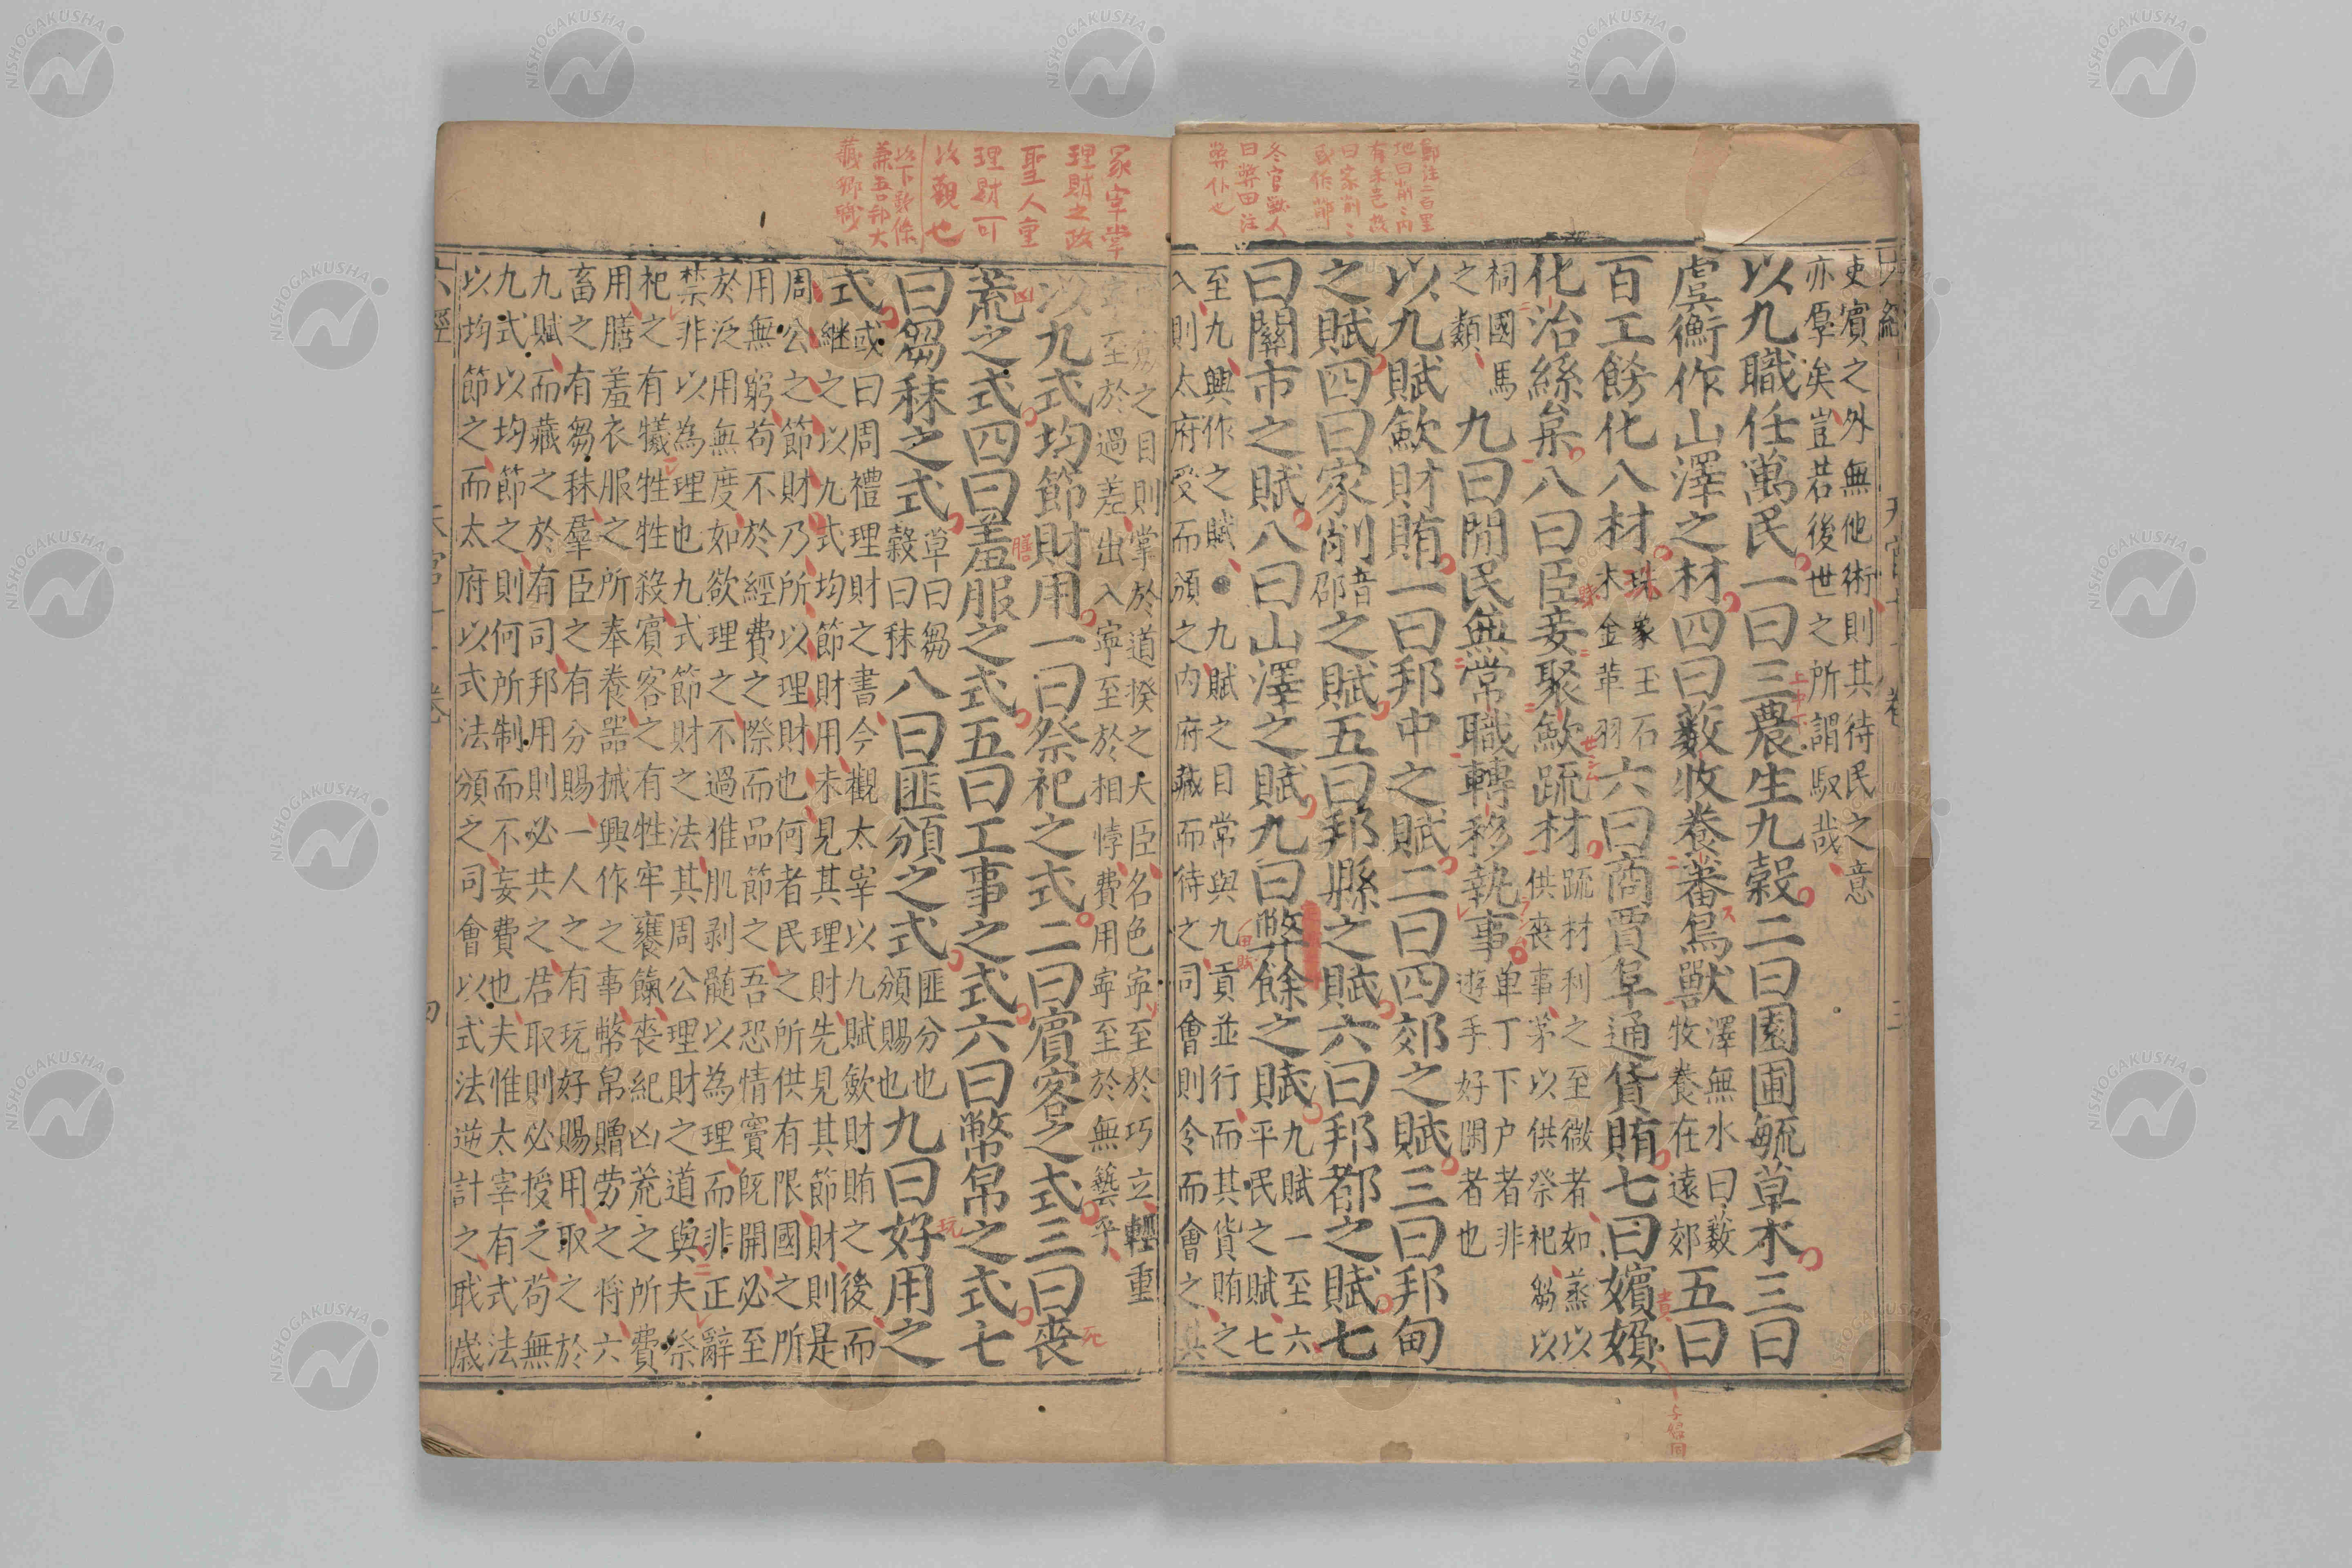 鄭注二百里
冬官獸人
曰弊田注
弊仆也
吏賓之外無他術則其待民之意
亦厚矣豈若後世之所謂馭哉
以九職任萬民一曰三農生九穀二曰園圃毓草木三曰
虞衡作山澤之材四曰藪牧養蕃鳥獸澤無水曰藪牧養在遠郊五曰
百工飭化八材珠象玉石木金革羽六曰商賈阜通貨賄七曰嬪嬪
化治絲枲八曰臣妾聚斂疏材疏材利之至微者如蒸以供喪事茅以供祭祀芻以
祠國馬之類九曰閒民無常職轉移執事单丁下户者非遊手好閑者也
以九賦斂財賄一曰邦中之賦二曰四郊之賦三曰邦甸
之賦四曰家削音邵之賦五曰邦縣之賦六曰邦都之賦七
曰關市之賦八曰山澤之賦九曰弊餘之賦九賦一至六平民之賦七
至九興作之賦●九賦之目常與九貢並行而其貨賄之
入則太府受而頒之内府藏而待之司會則令而會之其
冢宰掌
理財之政
聖人重
理財可
以觀也
芻之目則掌於道揆之大臣名色寧至於巧立輕重
至於過差出入寧至於相悖費用寧至於無藝乎
以九式均節財用一曰祭祀之式二曰賓客之式三曰喪
荒之式四曰羞服之式五曰工事之式六曰幣帛之式七
曰芻秣之式草曰芻穀曰秣八曰匪頒之式匪分也頒賜也九曰好用之
式或曰周禮理財之書今觀太宰以九賦斂財賄之後而
繼之以九式均節財用未見其理財先見其節財則是
周公之節財乃所以理財也何者民之所供有限國之所
用無窮苟不於經費之際而品節之吾恐情竇既開必至
於泛用無度如欲理之不過椎肌剥髓以為理而非正辭
禁非以為理也九式節財之法其周公理財之道與夫祭
祀之有犧牲牲殺賓客之有牲牢饔餼喪紀凶荒之所費
用膳羞衣服之所奉養器械興作之事幣帛贈劳之将六
畜之有芻秣羣臣之有分賜一人之有玩好賜用取之於
九賦而藏之於有司邦用則必共之君取則必授之苟無
九式以均節之則何所制而不妄費也夫惟太宰有式法
以均節之而太府以式法頒之司會以式法逆計之職歳